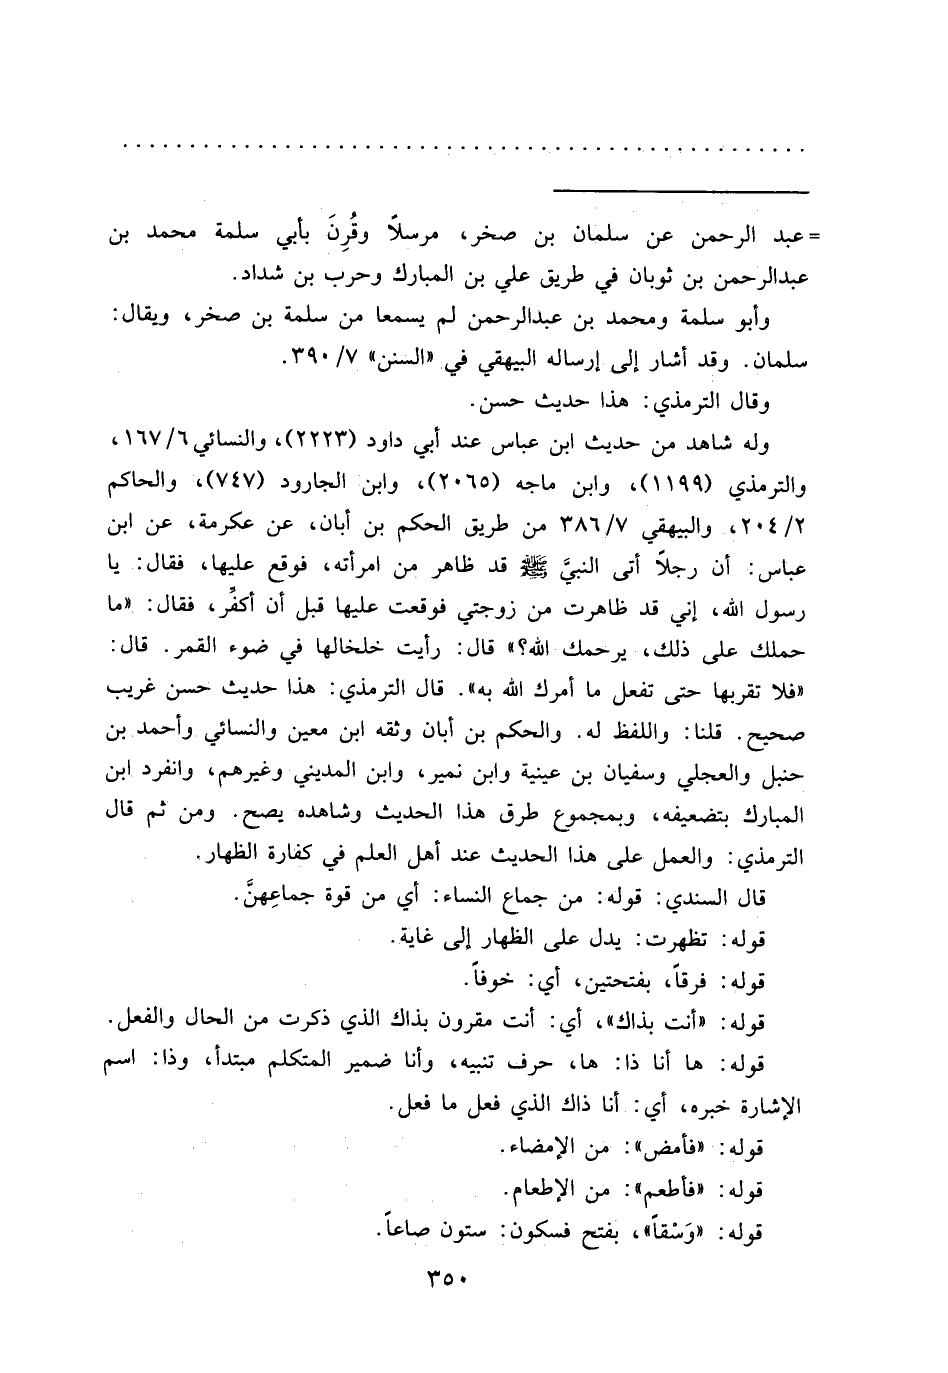 . . . . . . . . . . . . . . . . . . . . . . . . . . . . . . . . . . . . . . . . . . . . . . . . .
= عبد الرحمن عن سلمان بن صخر، مرسلاً وقُرِنَ بأبي سلمة محمد بن
عبدالرحمن بن ثوبان في طريق علي بن المبارك وحرب بن شداد.
وأبو سلمة ومحمد بن عبدالرحمن لم يسمعا من سلمة بن صخر، ويقال:
سلمان. وقد أشار إلى إرساله البيهقي في «السنن» ٣٩٠/٧.
وقال الترمذي: هذا حديث حسن.
وله شاهد من حديث ابن عباس عند أبي داود (٢٢٢٣)، والنسائي ١٦٧/٦،
والترمذي (١١٩٩)، وابن ماجه (٢٠٦٥)، وابن الجارود (٧٤٧)، والحاكم
٢٠٤/٢، والبيهقي ٣٨٦/٧ من طريق الحكم بن أبان، عن عكرمة، عن ابن
عباس: أن رجلاً أتى النبيَّ ﷺ قد ظاهر من امرأته، فوقع عليها، فقال: يا
رسول الله، إني قد ظاهرت من زوجتي فوقعت عليها قبل أن أكفِّر، فقال: «ما
حملك على ذلك، يرحمك الله؟» قال: رأيت خلخالها في ضوء القمر. قال:
«فلا تقربها حتى تفعل ما أمرك الله به». قال الترمذي: هذا حديث حسن غريب
صحيح. قلنا: واللفظ له. والحكم بن أبان وثقه ابن معين والنسائي وأحمد بن
حنبل والعجلي وسفيان بن عينية وابن نمير، وابن المديني وغيرهم، وانفرد ابن
المبارك بتضعيفه، وبمجموع طرق هذا الحديث وشاهده يصح. ومن ثم قال
الترمذي: والعمل على هذا الحديث عند أهل العلم في كفارة الظهار.
قال السندي: قوله: من جماع النساء: أي من قوة جماعِهنَّ.
قوله: تظهرت: يدل على الظهار إلى غاية.
قوله: فرقاً، بفتحتين، أي: خوفاً.
قوله: «أنت بذاك»، أي: أنت مقرون بذاك الذي ذكرت من الحال والفعل.
قوله: ها أنا ذا: ها، حرف تنبيه، وأنا ضمير المتكلم مبتدأ، وذا: اسم
الإشارة خبره، أي: أنا ذاك الذي فعل ما فعل.
قوله: «فأمض»: من الإمضاء.
قوله: «فأطعم»: من الإطعام.
قوله: «وَسْقاً»، بفتح فسكون: ستون صاعاً.
٣٥٠